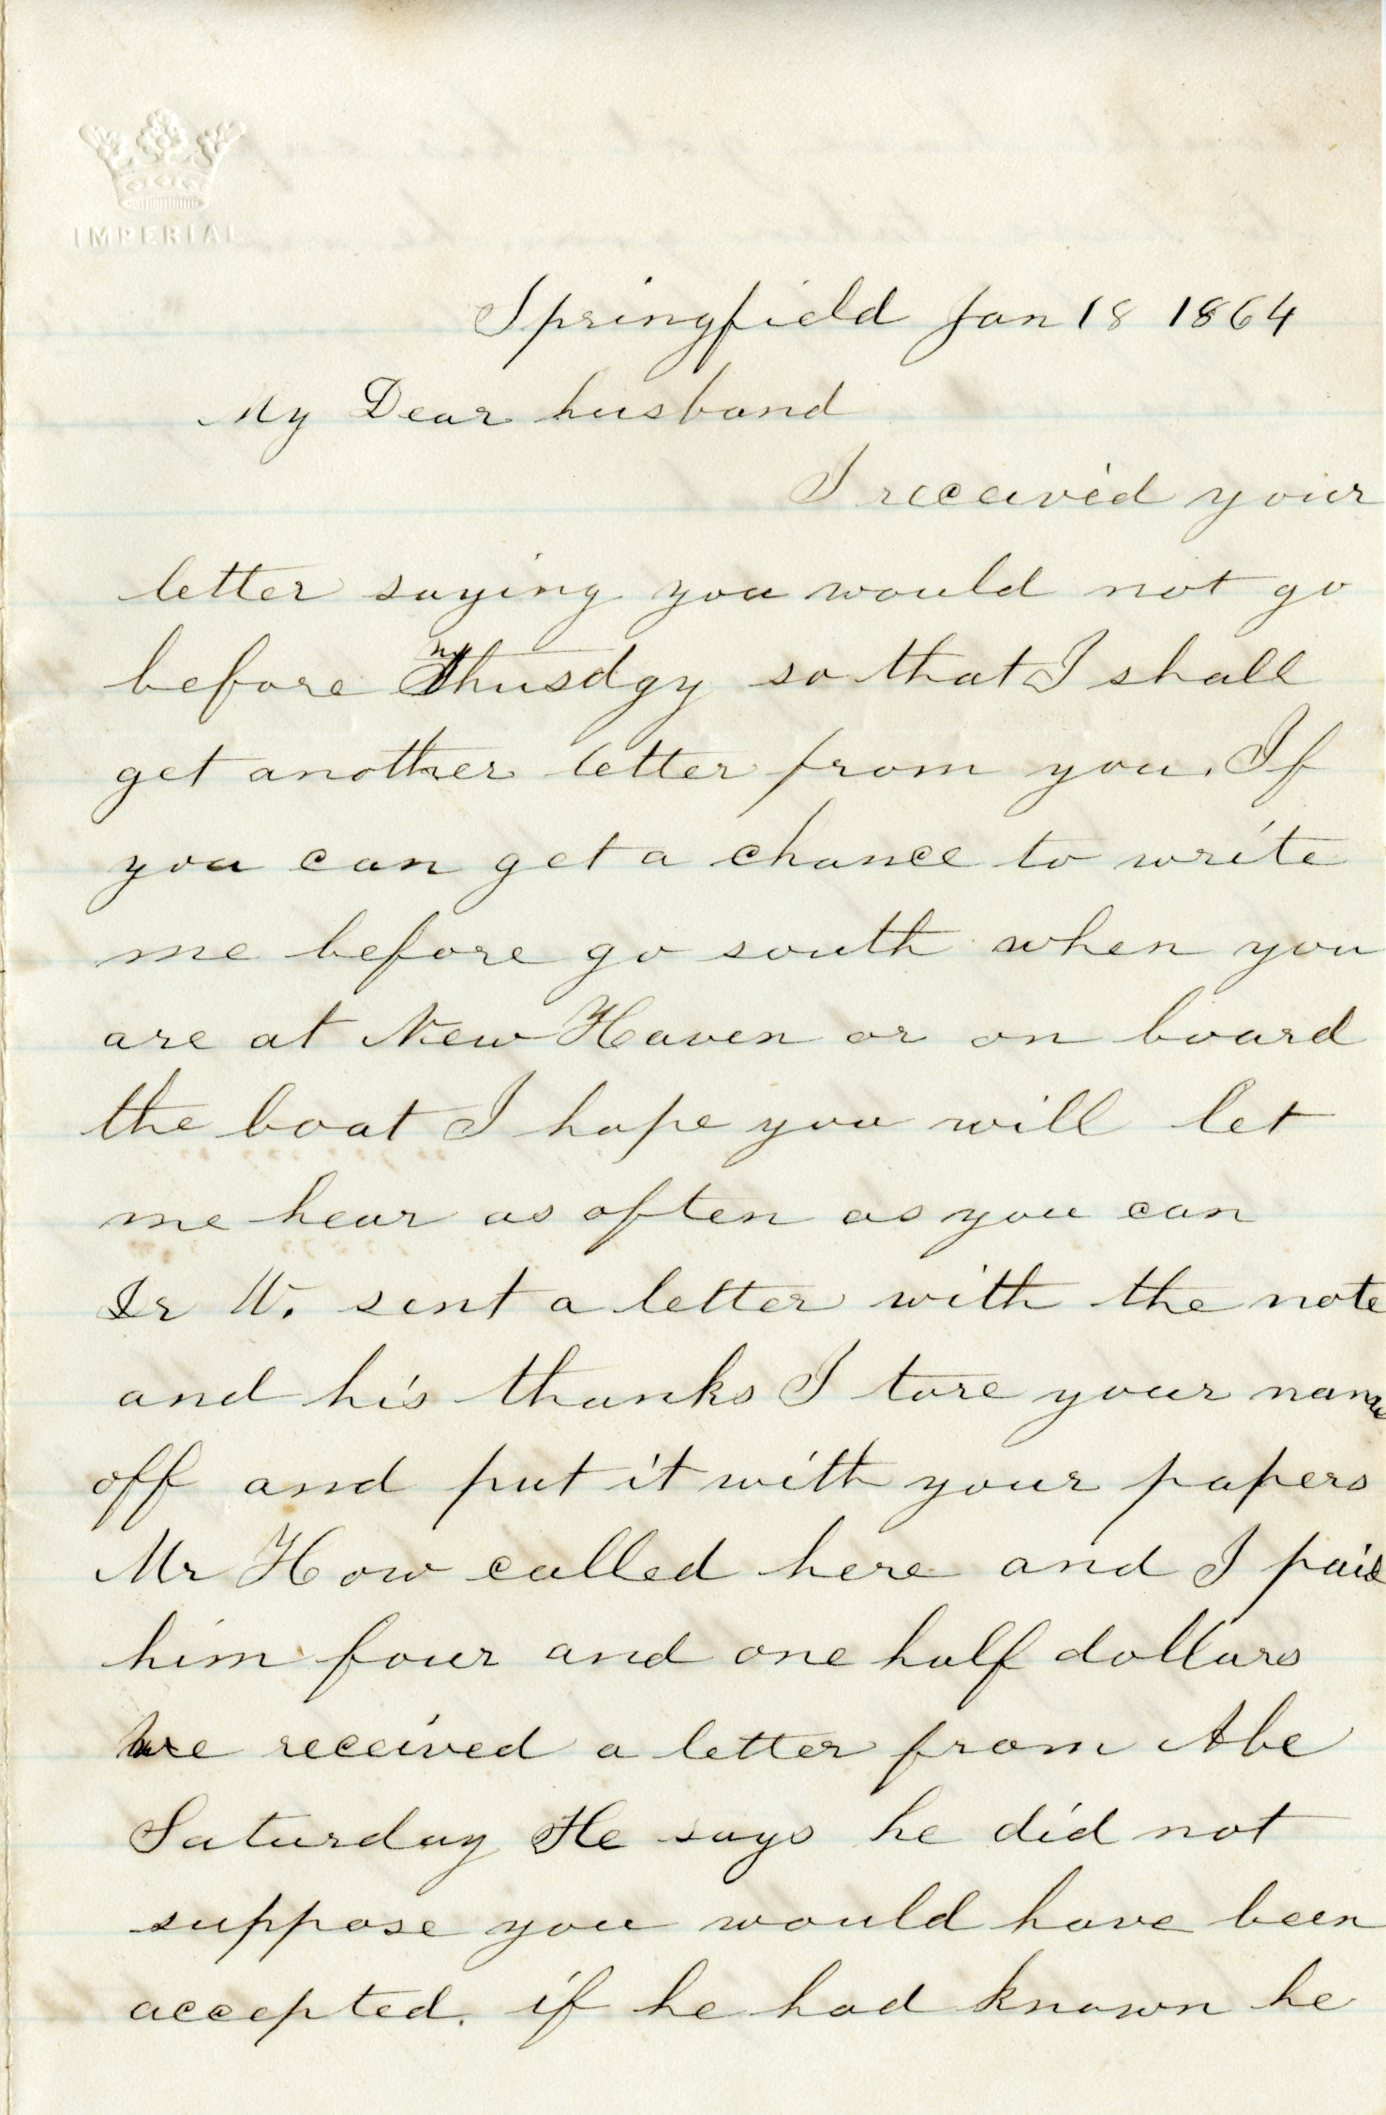 IMPERIAL
Springfield Jan 18 1864
My Dear husband
I received your
letter saying you would not go
before Thusday so that I shall
get another letter from you. If
you can get a chance to write
me before go south when you
are at New Haven or on board
the boat I hope you will let
me hear as often as you can
W. sent a letter with the note
and his thanks I tore your name
off and put it with your papers
Mr How called here and I paid
him four and one half dollars
We received a letter from Abe
Saturday He says he did not
suppose you would have been
accepted. if he had known he